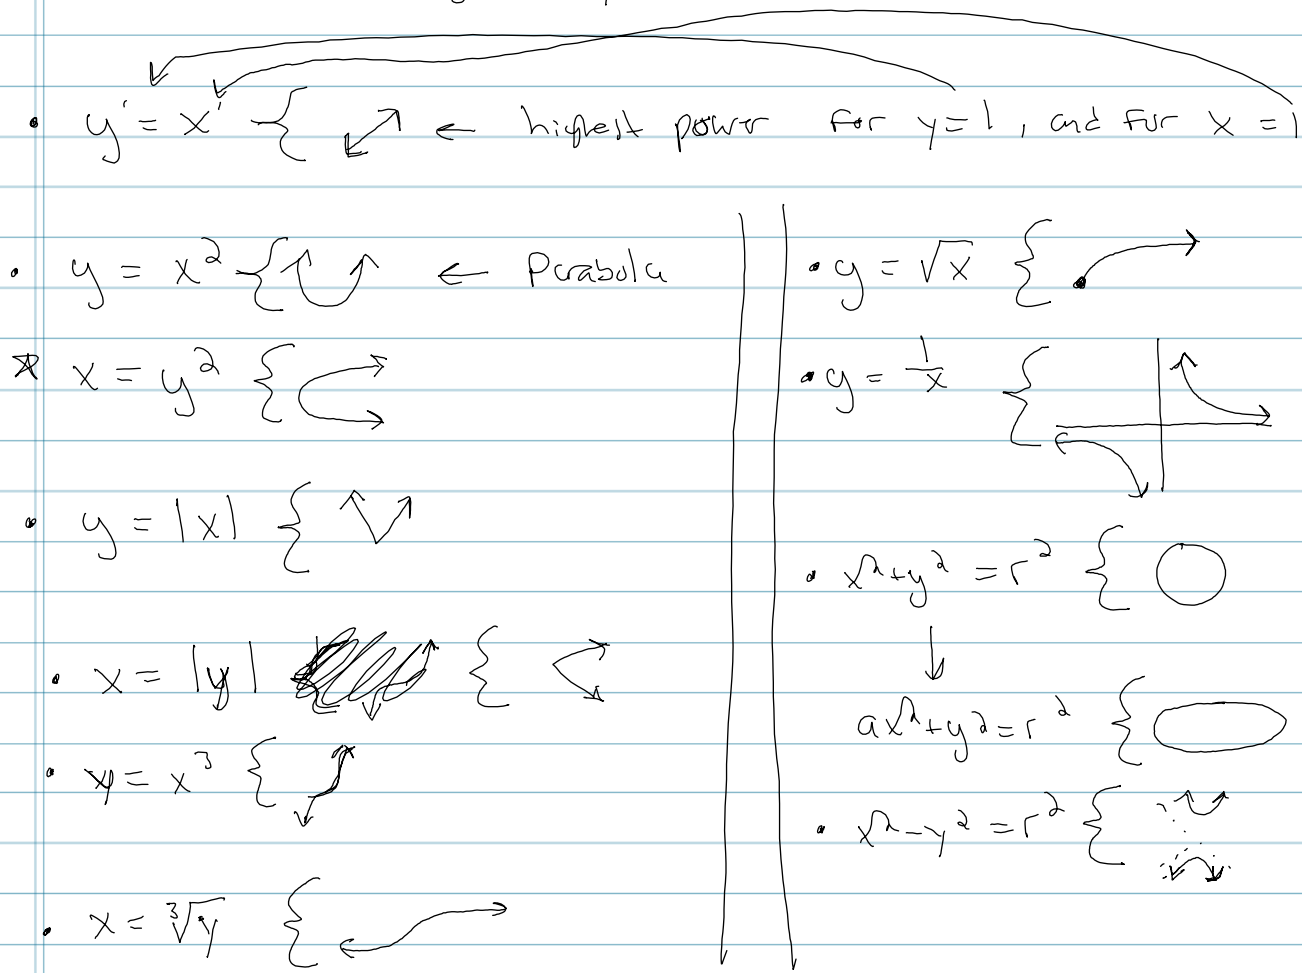 • y¹ = x¹ { ← highest power for y=1, and for x=1
• y = x² { ← Parabola
☆ x = y² {
• y = |x| {
• x = |y| {
• y = x³ {
• x = ∛y {
• y = √x {
• y = 1/x {
• x²+y² = r² {
↓
ax²+y²=r² {
• x²-y²=r² {